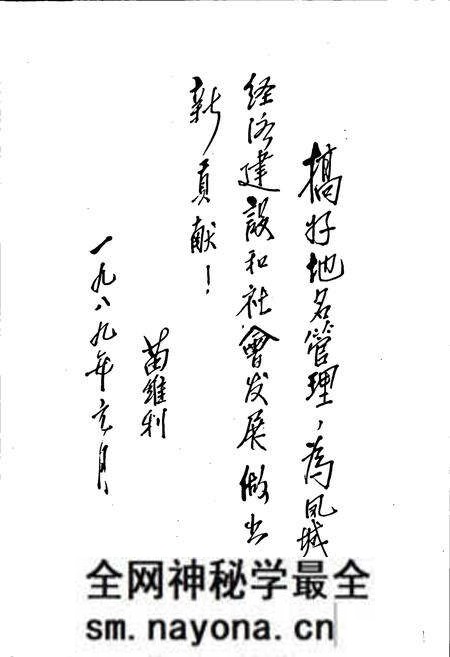 搞好地名管理,為凤城
经济建设和社會发展做出
新貢献!
苗維利
一九八九年六月
全网神秘学最全
sm.nayona.cn